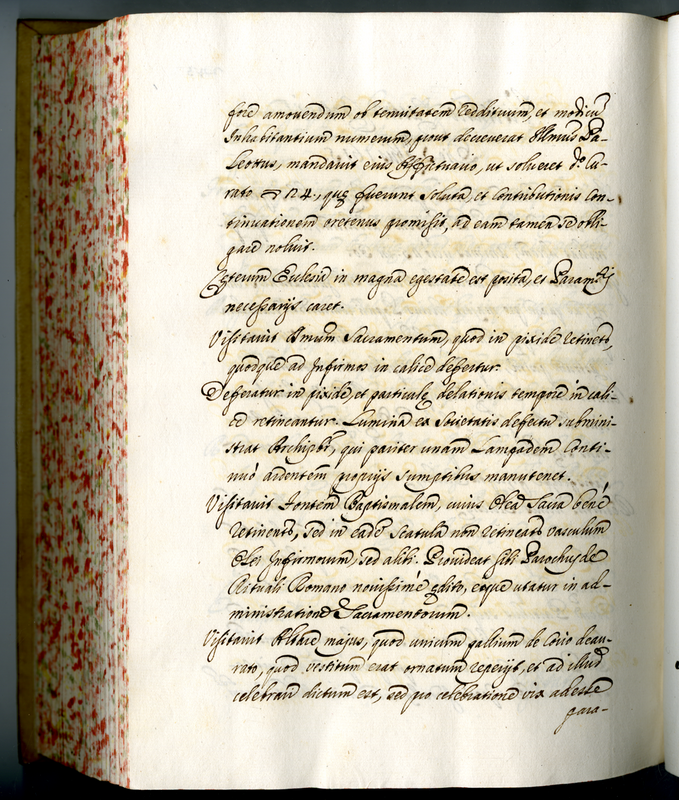 fore amovendum ob tenuitatem reddituum, et modicū
Inhabitantium numerum, prout decreverat Illmus Pa-
Leottus, mandavit eius Affictuario, ut solueret do Cu-
rato 124., quę fuerunt soluta, et contributionis con-
tinuationem oretenus promisit, ad eam tamen se obli-
gare noluit.
Cęterum Ecclesia in magna egestate est posita, et Param.tis
necessarijs caret.
Visitavit Smum Sacramentum, quod in pixide retinetr,
quodque ad Infirmos in calice defertur.
Deferatur in pixide, et particulę delationis tempore in cali-
ce retineantur. Lumina ex societatis defectu submini-
strat Archipbr, qui pariter unam Lampadem conti-
nuò ardentem proprijs sumptibus manutenet.
Visitavit Fontem Baptismalem, cuius Olea Sacra benè
retinentr, sed in eadē scatula non retineatr vasculum
Olei Infirmorum, sed alibi. Provideat sibi Parochus de
Rituali Romano novissimè ędito, eoque utatur in ad-
ministratione Sacramentorum.
Visitavit Altare majus, quod unicum pallium de Corio deau-
rato, quod vestitum erat ornatum reperijt, et ad illud
celebrari dictum est, sed pro celebratione vix adesse
para-